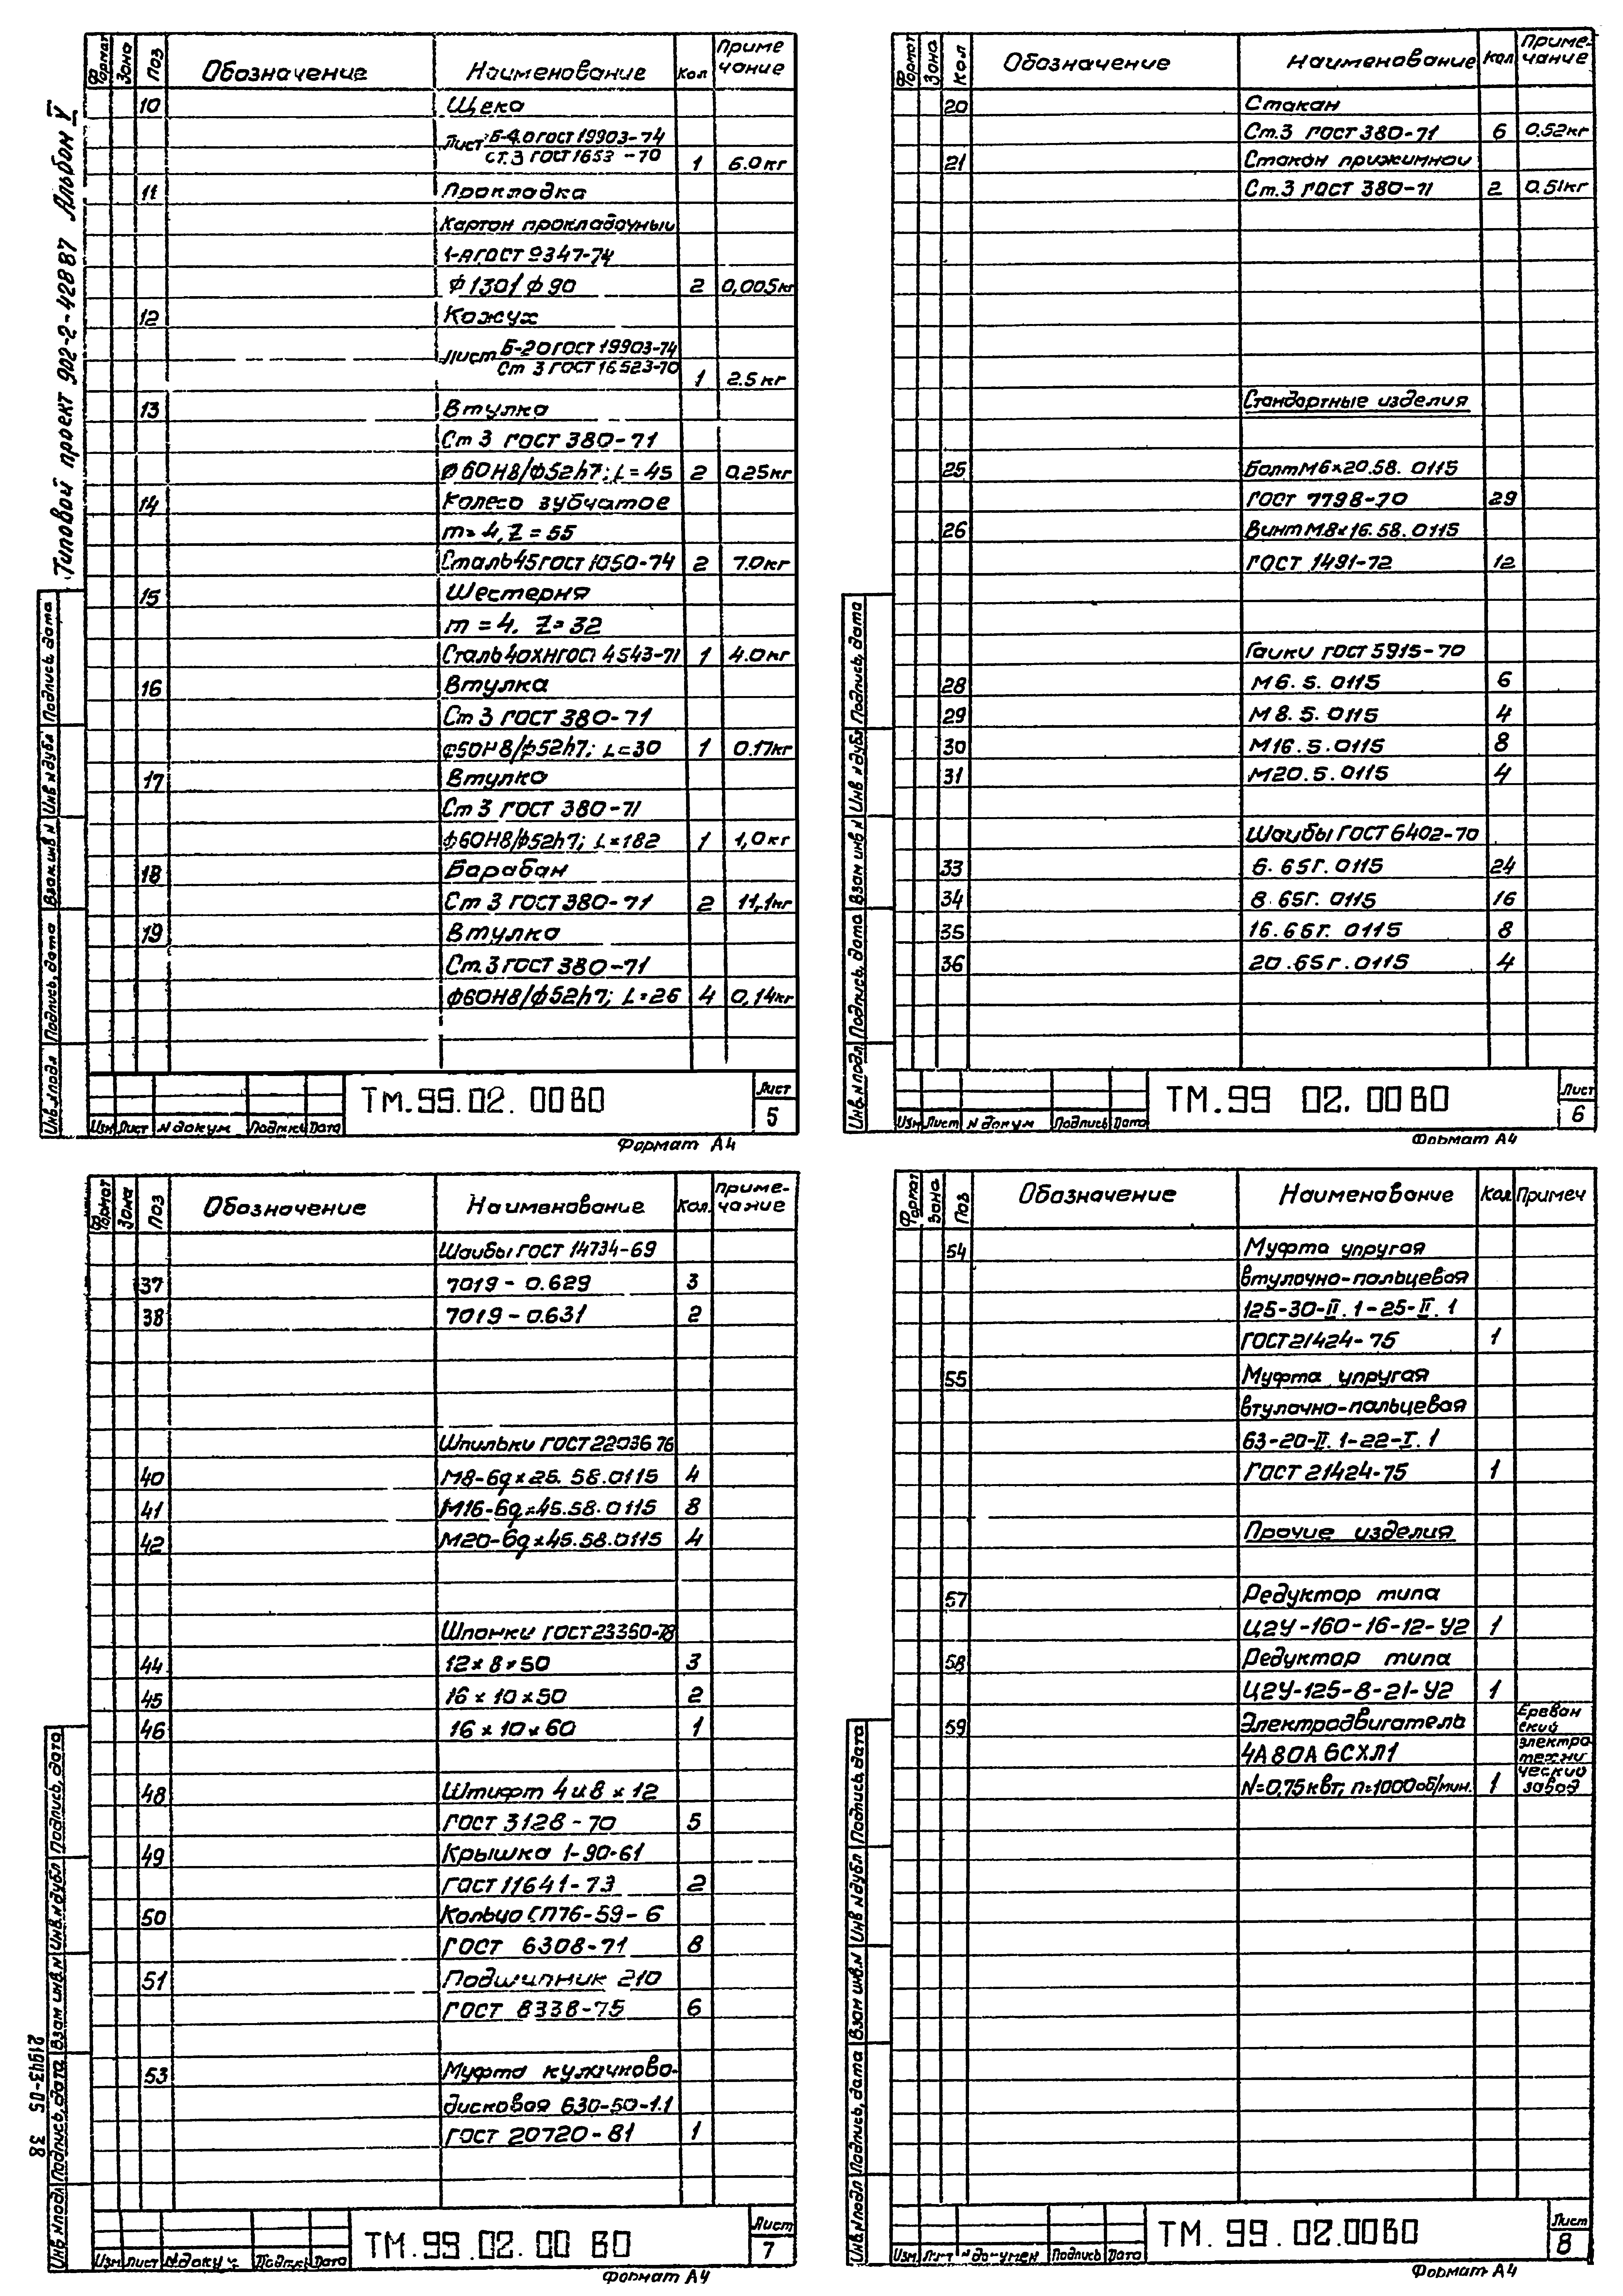 Типовой проект 902-2-428 87 Альбом V
Формат Зона Поз Обозначение Наименование Кол Приме
чание
10 Щека
Лист Б-4.0 ГОСТ 19903-74
Ст.3 ГОСТ 1653 -70 1 6.0кг
11 Прокладка
Картон прокладочный
1-А ГОСТ 9347-74
ф130/ф90 2 0,005кг
12 Кожух
Лист Б-20 ГОСТ 19903-74
Ст 3 ГОСТ 16523-70 1 2.5кг
13 Втулка
Ст 3 ГОСТ 380-71
ф60Н8/ф52h7; L=45 2 0.25кг
14 Колесо зубчатое
m=4, Z=55
Сталь 45 ГОСТ 1050-74 2 7.0кг
15 Шестерня
m=4. Z=32
Сталь 40ХН ГОСТ 4543-71 1 4.0кг
16 Втулка
Ст 3 ГОСТ 380-71
ф50Н8/ф52h7; L=30 1 0.17кг
17 Втулка
Ст 3 ГОСТ 380-71
ф60Н8/ф52h7; L=182 1 1,0кг
18 Барабан
Ст 3 ГОСТ 380-71 2 11,1кг
19 Втулка
Ст.3 ГОСТ 380-71
ф60Н8/ф52h7; L=26 4 0,14кг
Инв.N подл Подпись, дата Взам.инв N Инв N дубл Подпись, дата
ТМ.99.02.00 В0 Лист
5
Изм Лист N докум Подпись Дата
Формат А4
Формат Зона Кол Обозначение Наименование Кол Приме-
чание
20 Стакан
Ст.3 ГОСТ 380-71 6 0.52кг
21 Стакан прижимной
Ст.3 ГОСТ 380-71 2 0.51кг
Стандартные изделия
25 Болт М6×20.58.0115
ГОСТ 7798-70 29
26 Винт М8×16.58.0115
ГОСТ 1491-72 12
Гайки ГОСТ 5915-70
28 М6.5.0115 6
29 М8.5.0115 4
30 М16.5.0115 8
31 М20.5.0115 4
Шайбы ГОСТ 6402-70
33 6.65Г.0115 24
34 8.65Г.0115 16
35 16.65Г.0115 8
36 20.65Г.0115 4
Инв.N подл Подпись, дата Взам инв N Инв N дубл Подпись, дата
ТМ.99 02.00 В0 Лист
6
Изм Лист N докум Подпись Дата
Формат А4
Формат Зона Поз Обозначение Наименование Кол. Приме-
чание
Шайбы ГОСТ 14734-69
37 7019-0.629 3
38 7019-0.631 2
Шпильки ГОСТ 22036 76
40 М8-6g×25.58.0115 4
41 М16-6g×45.58.0115 8
42 М20-6g×45.58.0115 4
Шпонки ГОСТ 23360-78
44 12×8×50 3
45 16×10×50 2
46 16×10×60 1
48 Штифт 4и8×12
ГОСТ 3128-70 5
49 Крышка 1-90-61
ГОСТ 11641-73 2
50 Кольцо СП76-59-6
ГОСТ 6308-71 8
51 Подшипник 210
ГОСТ 8338-75 6
53 Муфта кулачково-
дисковая 630-50-1.1
ГОСТ 20720-81 1
21943-05 38
Инв.N подл Подпись, дата Взам инв.N Инв.N дубл Подпись, дата
ТМ.99.02.00 В0 Лист
7
Изм Лист N докум. Подпись Дата
Формат А4
Формат Зона Поз Обозначение Наименование Кол Примеч
54 Муфта упругая
втулочно-пальцевая
125-30-II.1-25-II.1
ГОСТ 21424-75 1
55 Муфта упругая
втулочно-пальцевая
63-20-II.1-22-I.1
ГОСТ 21424-75 1
Прочие изделия
57 Редуктор типа
Ц2У-160-16-12-У2 1
58 Редуктор типа
Ц2У-125-8-21-У2 1
59 Электродвигатель Ереван
ский
4А80А6СХЛ1 электро
техни
N=0,75квт; n=1000об/мин. 1 ческий
завод
Инв.N подл Подпись, дата Взам инв.N Инв N дубл Подпись, дата
ТМ.99.02.00В0 Лист
8
Изм Лист N докумен Подпись Дата
Формат А4